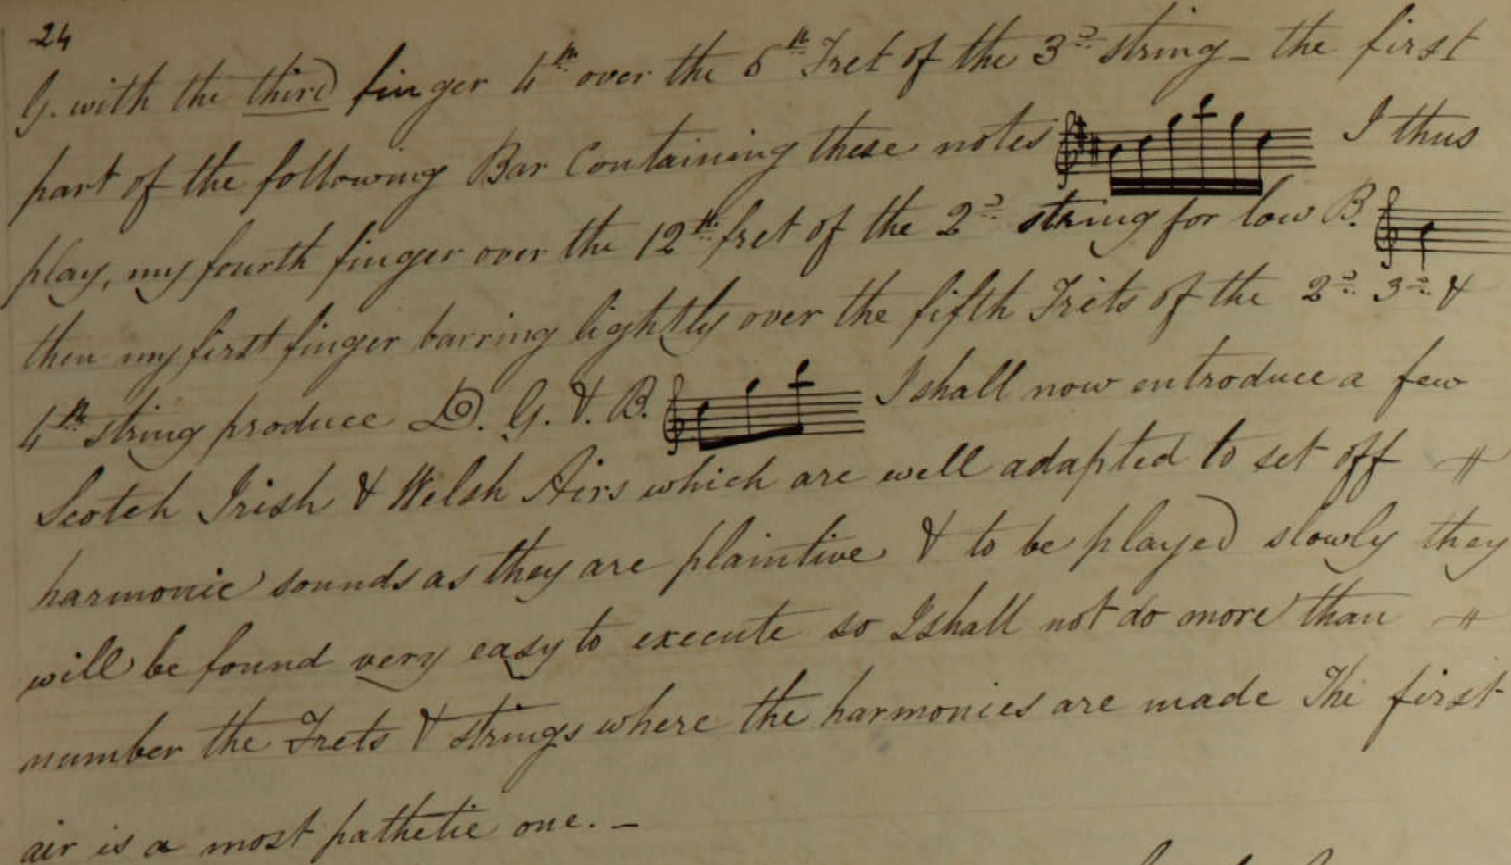 24
G. with the third finger 4th over the 5th Fret of the 3d string – the first
part of the following Bar Containing these notes I thus
play, my fourth finger over the 12th fret of the 2d string for low B.
then my first finger barring lightly over the fifth Frets of the 2d 3d &
4th string produce D. G. & B. I shall now entroduce a few
Scotch Irish & Welsh Airs which are well adapted to set off
harmonic sounds as they are plaintive & to be played slowly they
will be found very easy to execute so I shall not do more than
number the Frets & strings where the harmonies are made The first
air is a most pathetic one. –